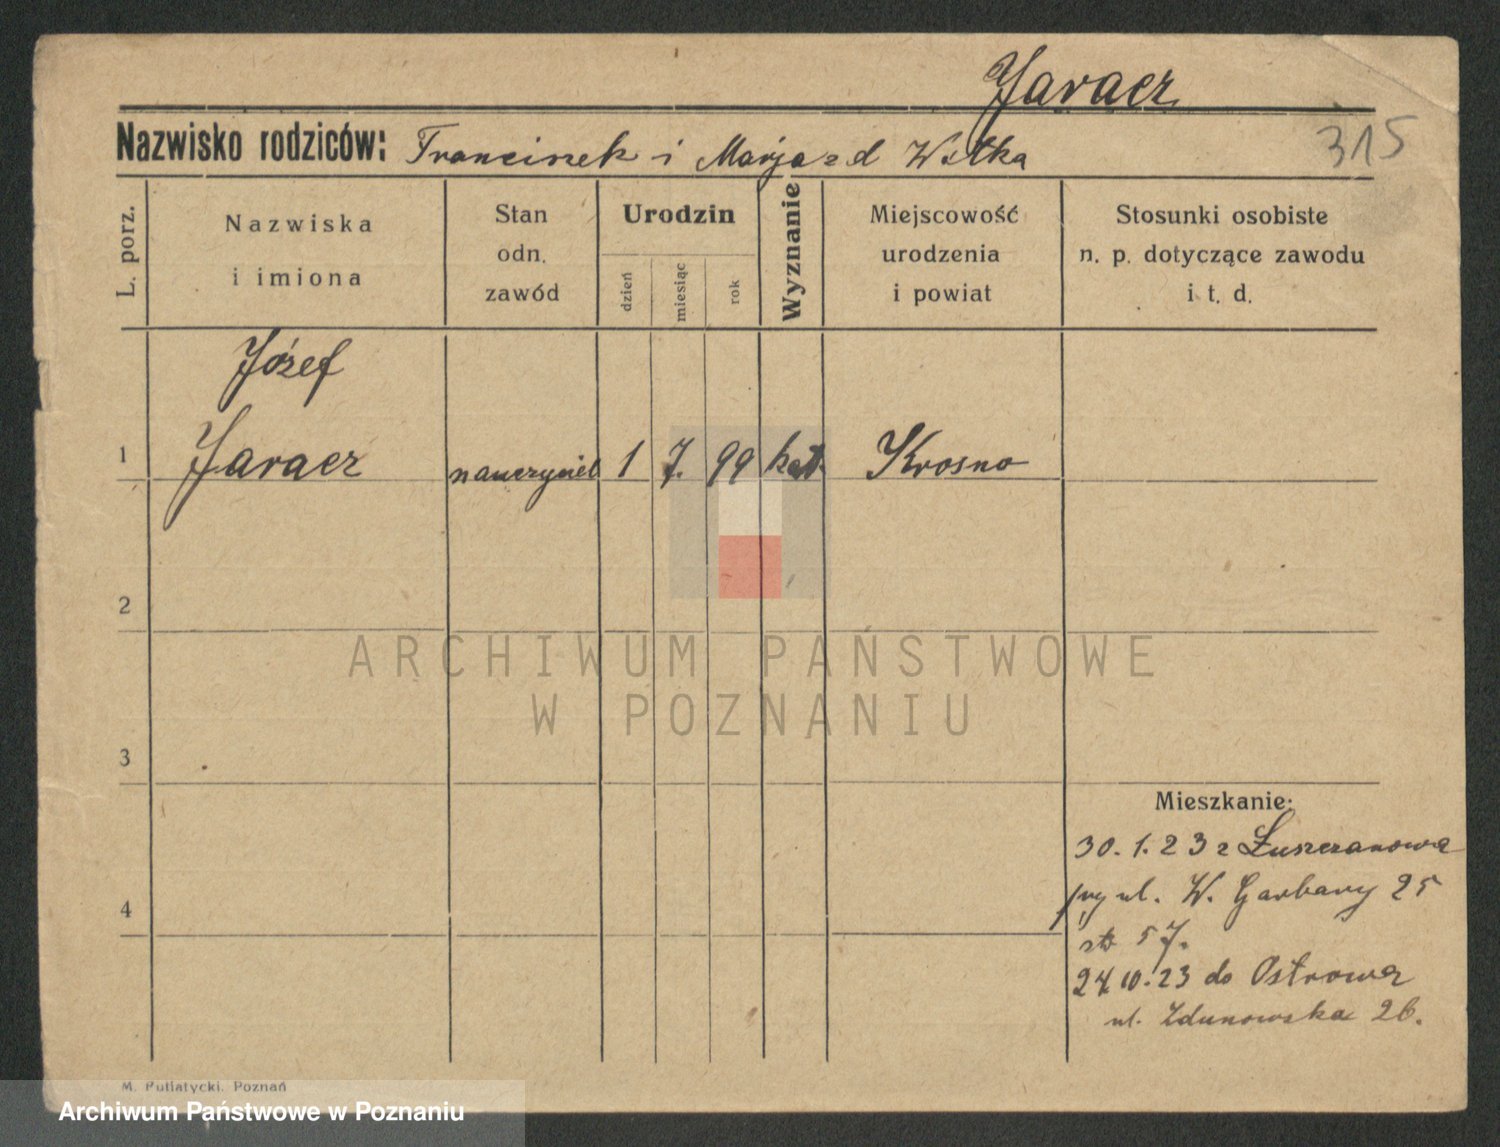 Jaracz
315
Nazwisko rodziców: Franciszek i Marja z d
L. porz.
Nazwiska i imiona
Stan odn. zawód
Urodzin
dzień
miesiąc
rok
Wyznanie
Miejscowość urodzenia i powiat
Stosunki osobiste n. p. dotyczące zawodu i t. d.
Józef
1 Jaracz nauczyciel 1 7. 99 kat. Krosno
2
ARCHIWUM PAŃSTWOWE
W POZNANIU
3
Mieszkanie:
30. 1. 23 z Łuszczanowa
ul. W. Garbary 25
57.
4
24.10.23 do Ostrowa
ul. Zdunowska 26.
M. Putiatycki, Poznań
Archiwum Państwowe w Poznaniu